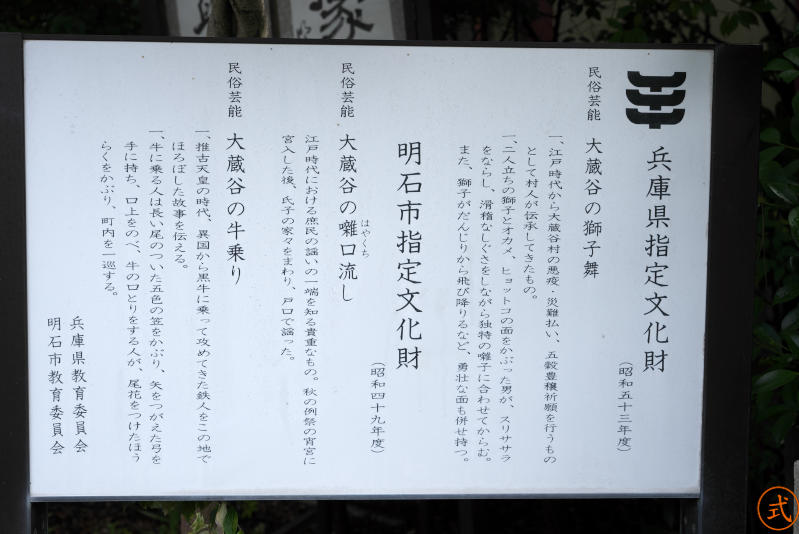 兵庫県指定文化財
(昭和五十三年度)
民俗芸能 大蔵谷の獅子舞
一、江戸時代から大蔵谷村の悪疫・災難払い、五穀豊穣祈願を行うもの
として村人が伝承してきたもの。
一、二人立ちの獅子とオカメ、ヒョットコの面をかぶった男が、スリササラ
をならし、滑稽なしぐさをしながら独特の囃子に合わせてからむ。
また、獅子がだんじりから飛び降りるなど、勇壮な面も併せ持つ。
明石市指定文化財
(昭和四十九年度)
民俗芸能 大蔵谷の囃口流し
はやくち
江戸時代における庶民の謡いの一端を知る貴重なもの。秋の例祭の宵宮に
宮入した後、氏子の家々をまわり、戸口で謡った。
民俗芸能 大蔵谷の牛乗り
一、推古天皇の時代、異国から黒牛に乗って攻めてきた鉄人をこの地で
ほろぼした故事を伝える。
一、牛に乗る人は長い尾のついた五色の笠をかぶり、矢をつがえた弓を
手に持ち、口上をのべ、牛の口とりをする人が、尾花をつけたほう
らくをかぶり、町内を一巡する。
兵庫県教育委員会
明石市教育委員会
家
式